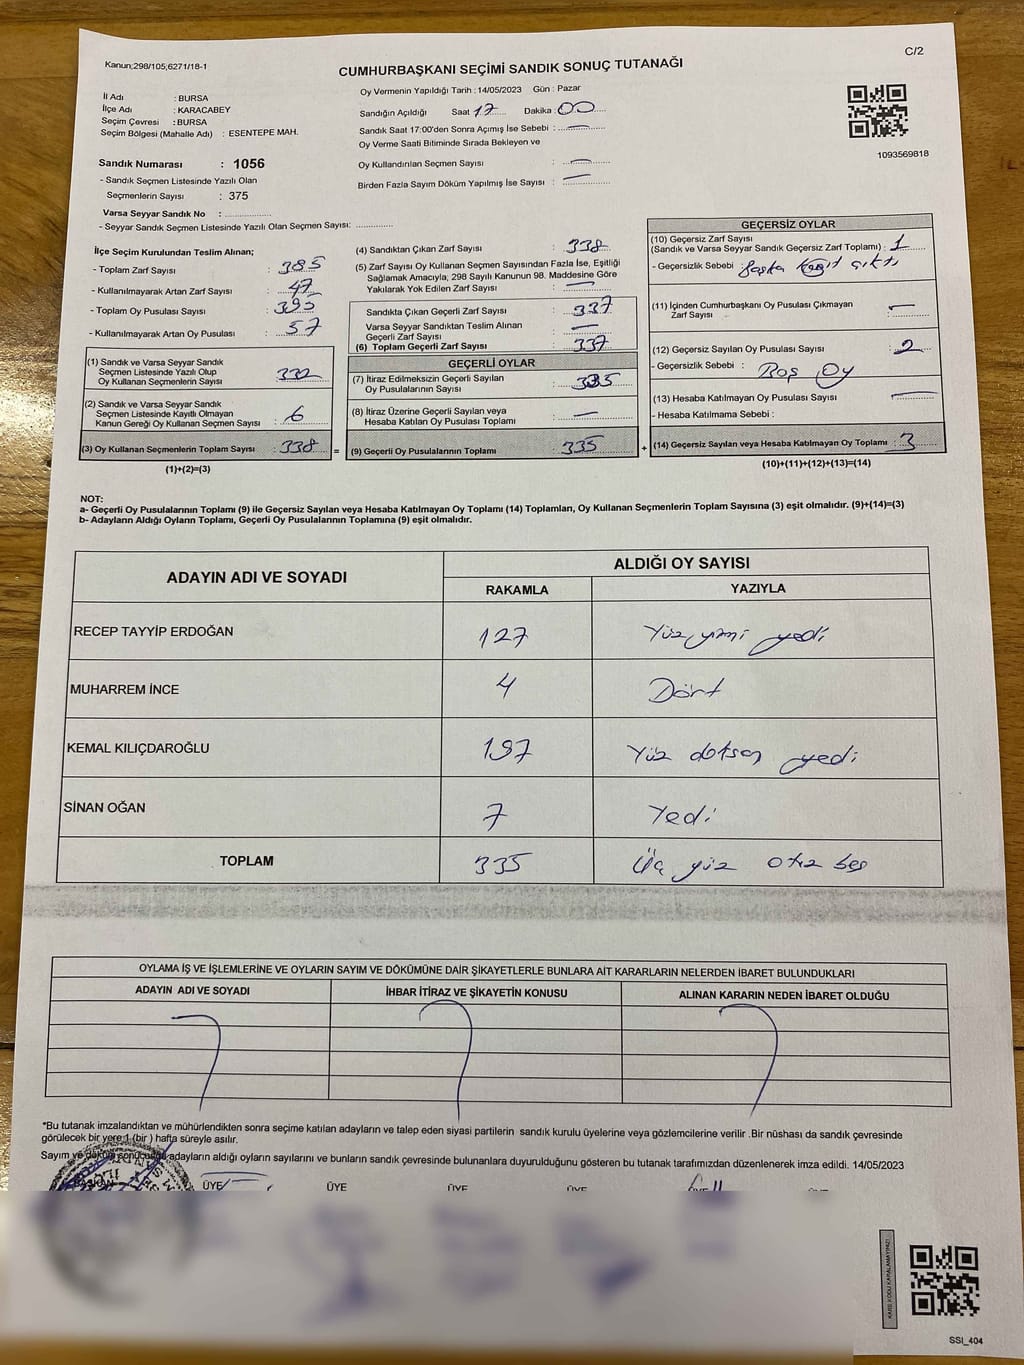 Kanun;298/105;6271/18-1
C/2
CUMHURBAŞKANI SEÇİMİ SANDIK SONUÇ TUTANAĞI
İl Adı : BURSA
İlçe Adı : KARACABEY
Seçim Çevresi : BURSA
Seçim Bölgesi (Mahalle Adı) : ESENTEPE MAH.
Sandık Numarası : 1056
- Sandık Seçmen Listesinde Yazılı Olan
Seçmenlerin Sayısı : 375
Varsa Seyyar Sandık No : ..................
- Seyyar Sandık Seçmen Listesinde Yazılı Olan Seçmen Sayısı: ..............
Oy Vermenin Yapıldığı Tarih : 14/05/2023 Gün : Pazar
Sandığın Açıldığı Saat 17 Dakika 00
Sandık Saat 17:00'den Sonra Açımış İse Sebebi : —
Oy Verme Saati Bitiminde Sırada Bekleyen ve
Oy Kullandırılan Seçmen Sayısı : —
Birden Fazla Sayım Döküm Yapılmış İse Sayısı : —
1093569818
İlçe Seçim Kurulundan Teslim Alınan;
- Toplam Zarf Sayısı : 385
- Kullanılmayarak Artan Zarf Sayısı : 47
- Toplam Oy Pusulası Sayısı : 395
- Kullanılmayarak Artan Oy Pusulası : 57
(1) Sandık ve Varsa Seyyar Sandık
Seçmen Listesinde Yazılı Olup
Oy Kullanan Seçmenlerin Sayısı : 332
(2) Sandık ve Varsa Seyyar Sandık
Seçmen Listesinde Kayıtlı Olmayan
Kanun Gereği Oy Kullanan Seçmen Sayısı : 6
(3) Oy Kullanan Seçmenlerin Toplam Sayısı : 338
(1)+(2)=(3)
(4) Sandıktan Çıkan Zarf Sayısı : 338
(5) Zarf Sayısı Oy Kullanan Seçmen Sayısından Fazla İse, Eşitliği
Sağlamak Amacıyla; 298 Sayılı Kanunun 98. Maddesine Göre
Yakılarak Yok Edilen Zarf Sayısı : —
Sandıkta Çıkan Geçerli Zarf Sayısı : 337
Varsa Seyyar Sandıktan Teslim Alınan
Geçerli Zarf Sayısı : —
(6) Toplam Geçerli Zarf Sayısı : 337
GEÇERLİ OYLAR
(7) İtiraz Edilmeksizin Geçerli Sayılan
Oy Pusulalarının Sayısı : 335
(8) İtiraz Üzerine Geçerli Sayılan veya
Hesaba Katılan Oy Pusulası Toplamı : —
= (9) Geçerli Oy Pusulalarının Toplamı : 335 +
GEÇERSİZ OYLAR
(10) Geçersiz Zarf Sayısı
(Sandık ve Varsa Seyyar Sandık Geçersiz Zarf Toplamı) : 1
- Geçersizlik Sebebi : Başka Kağıt çıktı
(11) İçinden Cumhurbaşkanı Oy Pusulası Çıkmayan
Zarf Sayısı : —
(12) Geçersiz Sayılan Oy Pusulası Sayısı : 2
- Geçersizlik Sebebi : Boş Oy
(13) Hesaba Katılmayan Oy Pusulası Sayısı : —
- Hesaba Katılmama Sebebi :
(14) Geçersiz Sayılan veya Hesaba Katılmayan Oy Toplamı : 3
(10)+(11)+(12)+(13)=(14)
NOT:
a- Geçerli Oy Pusulalarının Toplamı (9) ile Geçersiz Sayılan veya Hesaba Katılmayan Oy Toplamı (14) Toplamları, Oy Kullanan Seçmenlerin Toplam Sayısına (3) eşit olmalıdır. (9)+(14)=(3)
b- Adayların Aldığı Oyların Toplamı, Geçerli Oy Pusulalarının Toplamına (9) eşit olmalıdır.
ADAYIN ADI VE SOYADI
ALDIĞI OY SAYISI
RAKAMLA YAZIYLA
RECEP TAYYİP ERDOĞAN 127 Yüz yirmi yedi
MUHARREM İNCE 4 Dört
KEMAL KILIÇDAROĞLU 197 Yüz doksan yedi
SİNAN OĞAN 7 Yedi
TOPLAM 335 Üç yüz otuz beş
OYLAMA İŞ VE İŞLEMLERİNE VE OYLARIN SAYIM VE DÖKÜMÜNE DAİR ŞİKAYETLERLE BUNLARA AİT KARARLARIN NELERDEN İBARET BULUNDUKLARI
ADAYIN ADI VE SOYADI İHBAR İTİRAZ VE ŞİKAYETİN KONUSU ALINAN KARARIN NEDEN İBARET OLDUĞU
*Bu tutanak imzalandıktan ve mühürlendikten sonra seçime katılan adayların ve talep eden siyasi partilerin sandık kurulu üyelerine veya gözlemcilerine verilir .Bir nüshası da sandık çevresinde
görülecek bir yere 1 (bir ) hafta süreyle asılır.
Sayım ve döküm sonucunda adayların aldığı oyların sayılarını ve bunların sandık çevresinde bulunanlara duyurulduğunu gösteren bu tutanak tarafımızdan düzenlenerek imza edildi. 14/05/2023
BAŞKAN ÜYE ÜYE ÜYE ÜYE ÜYE ÜYE
SSI_404